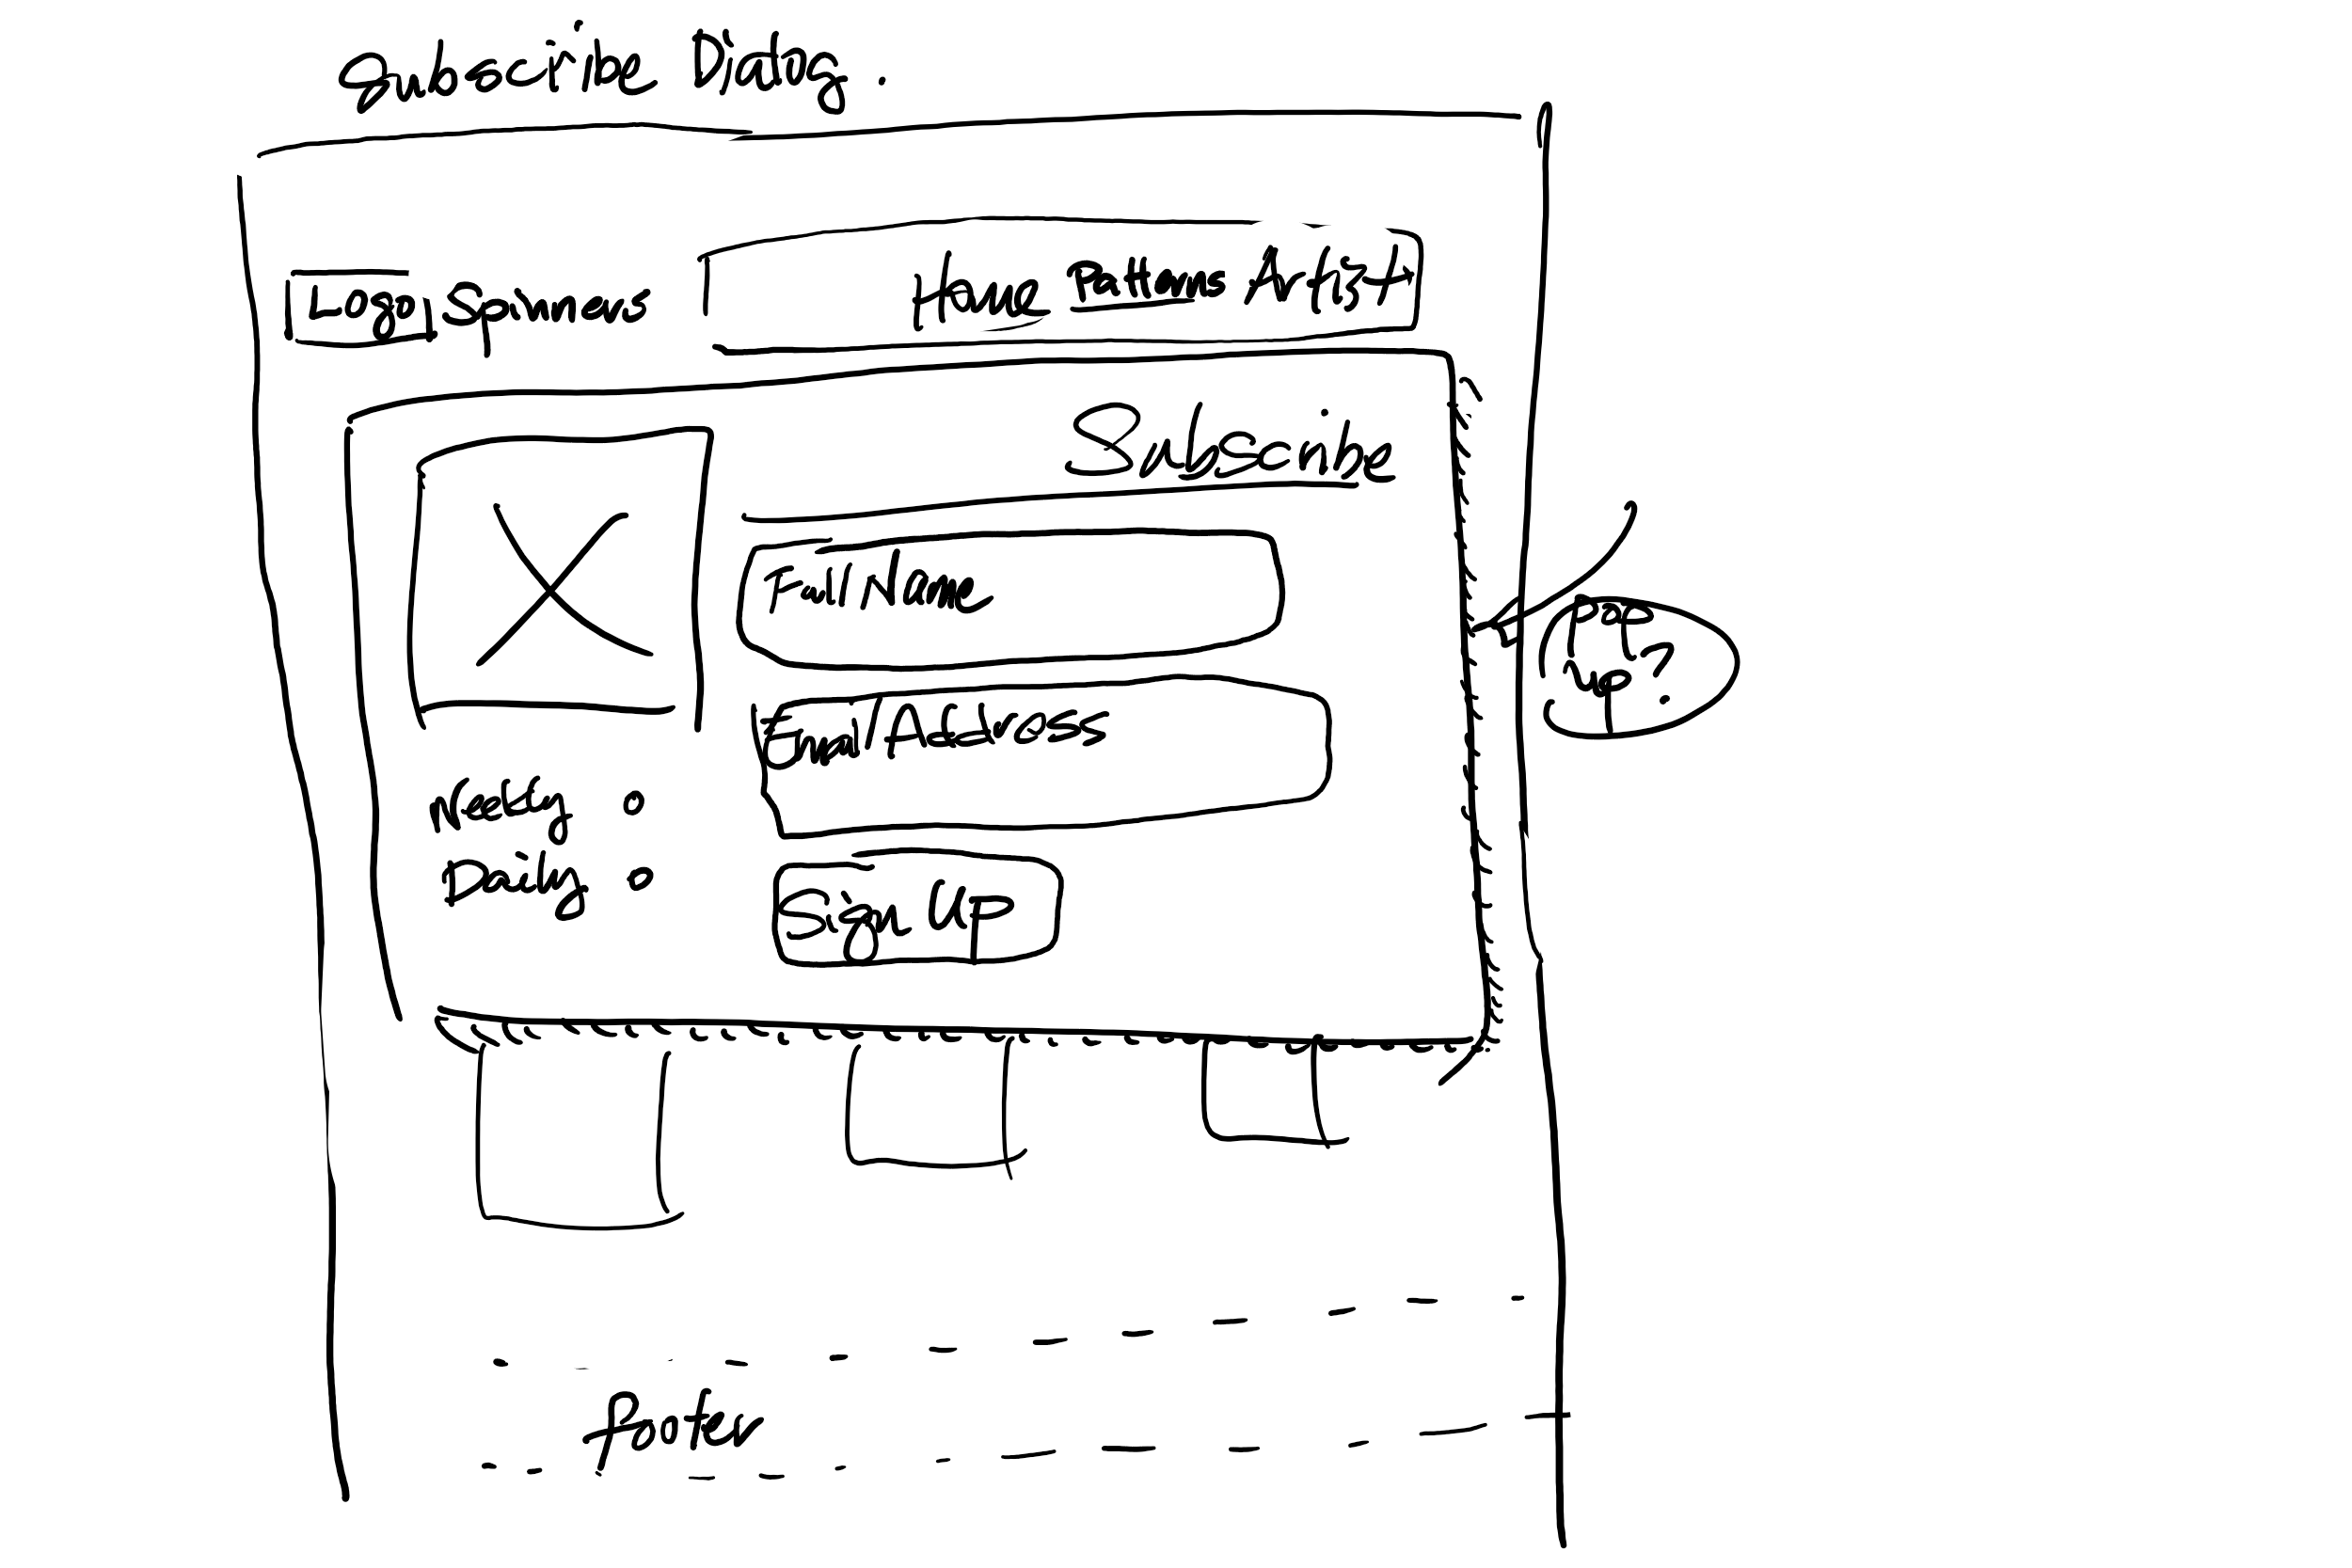 Subscribe Dialog.
Logo Spinners
Home Patterns Artist
Subscribe
Full Name
Pop up?
Email Address
Weekly
Daily
Sign Up
Footer